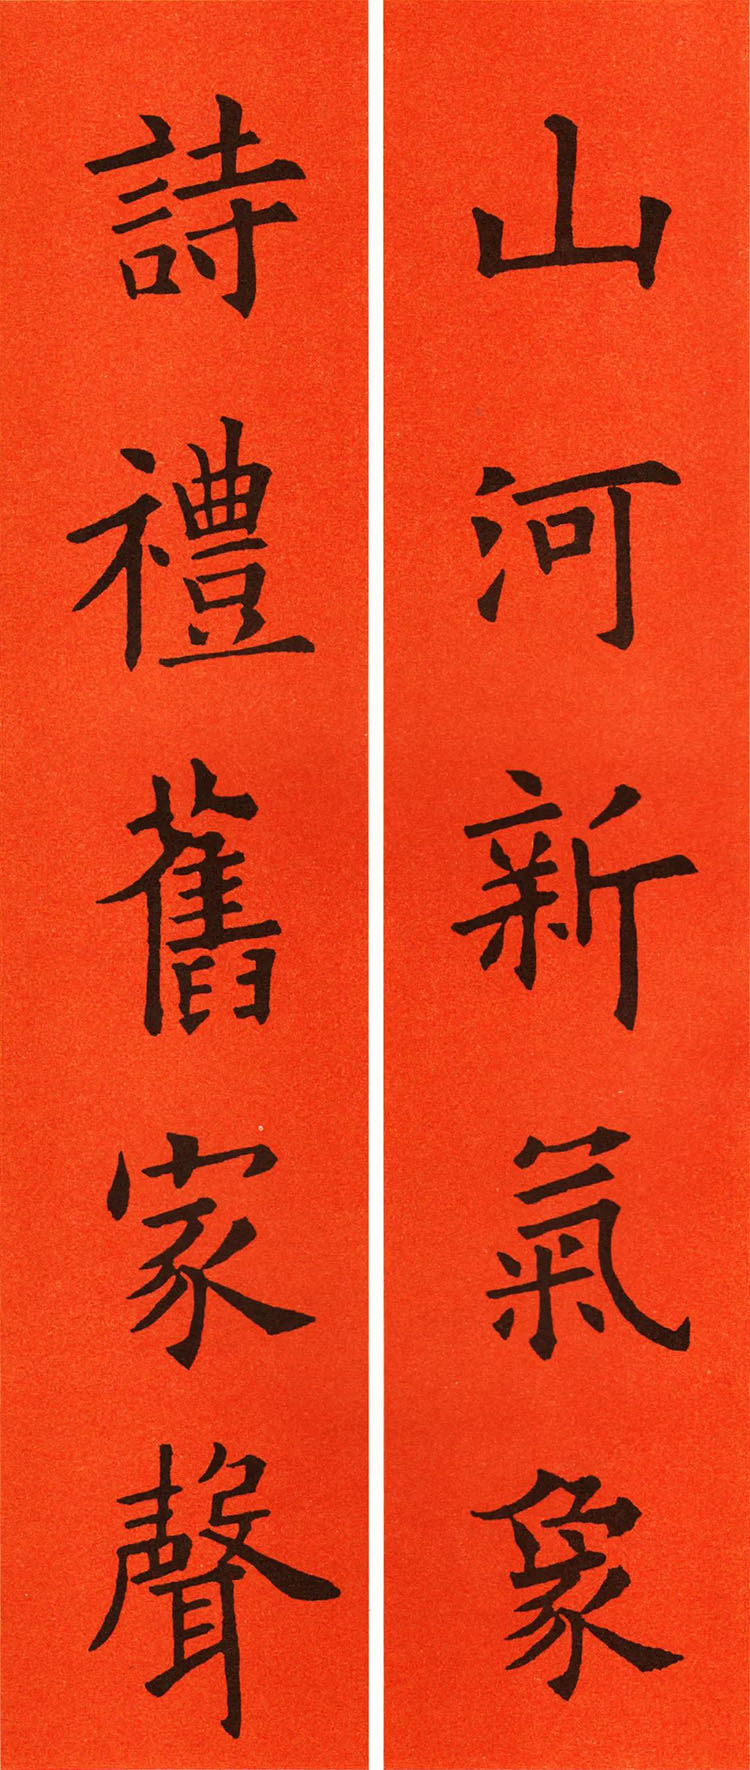 山河新氣象
詩禮舊家聲